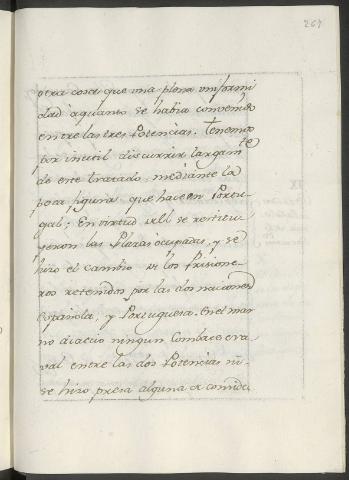 267
otra cosa que una plena uniformi
dad àquanto se habia convenido
entre las tres Potencias. Tenemos
por inutil discurrir largam.te
de este tratado, mediante la
poca figura que hace en Portu
gal; En virtud del se restitu
yeron las Plazas ocupadas, y se
hizo el cambio de los Prisione
ros retenidos por las dos naciones
Española, y Portuguesa. En el mar
no acaeciò ningun Combate na
val entre las dos Potencias ni
se hizo presa alguna de conside